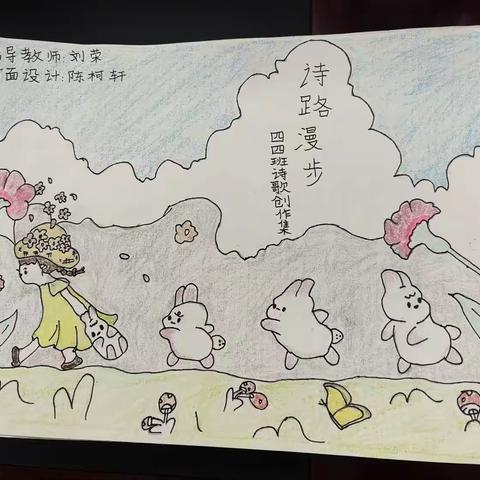 导教师:刘荣
面设计:陈柯轩
诗路漫步
四四班诗歌创作集